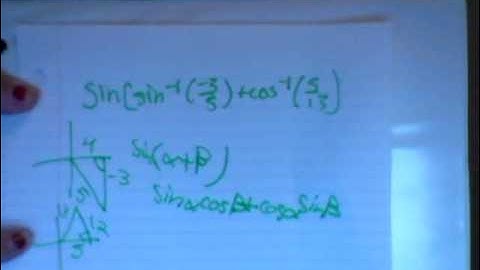 Sin[sin⁻¹(-3/5)+cos⁻¹(5/13)]
4
Sin(α+β)
-3
5
Sinαcosβ+cosαSinβ
12
5